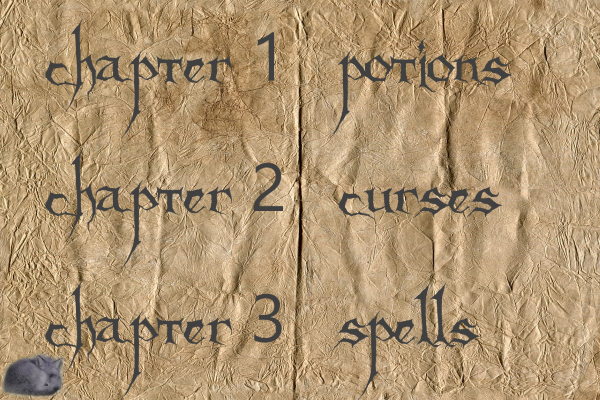 chapter 1 potions
chapter 2 curses
chapter 3 spells